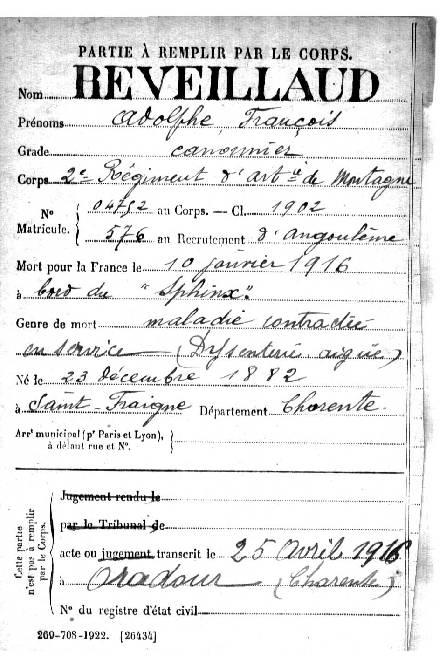 PARTIE À REMPLIR PAR LE CORPS.
Nom REVEILLAUD
Prénoms Adolphe, François
Grade canonnier
Corps 2e Régiment d'artie de Montagne
N° Matricule. { 04752 au Corps. — Cl. 1902
576 au Recrutement d'Angoulême
Mort pour la France le 10 janvier 1916
à bord du "Sphinx".
Genre de mort maladie contractée
en service (Dysenterie aigüe)
Né le 23 décembre 1882
à Saint-Fraigne Département Charente.
Arrt municipal (pr Paris et Lyon),
à défaut rue et N°.
Cette partie n'est pas à remplir par le Corps.
Jugement rendu le
par le Tribunal de
acte ou jugement transcrit le 25 Avril 1916
à Oradour (Charente)
N° du registre d'état civil
269-708-1922. [26434]